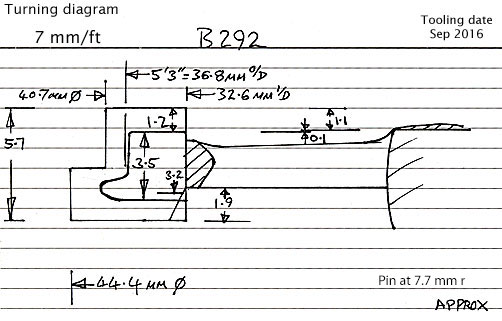 Turning diagram
Tooling date
7 mm/ft
B292
Sep 2016
5'3"=36.8mm O/D
40.7mm Ø
32.6mm I/D
1.2
1.1
5.7
0.1
3.5
3.2
1.9
44.4 mm Ø
Pin at 7.7 mm r
APPROX